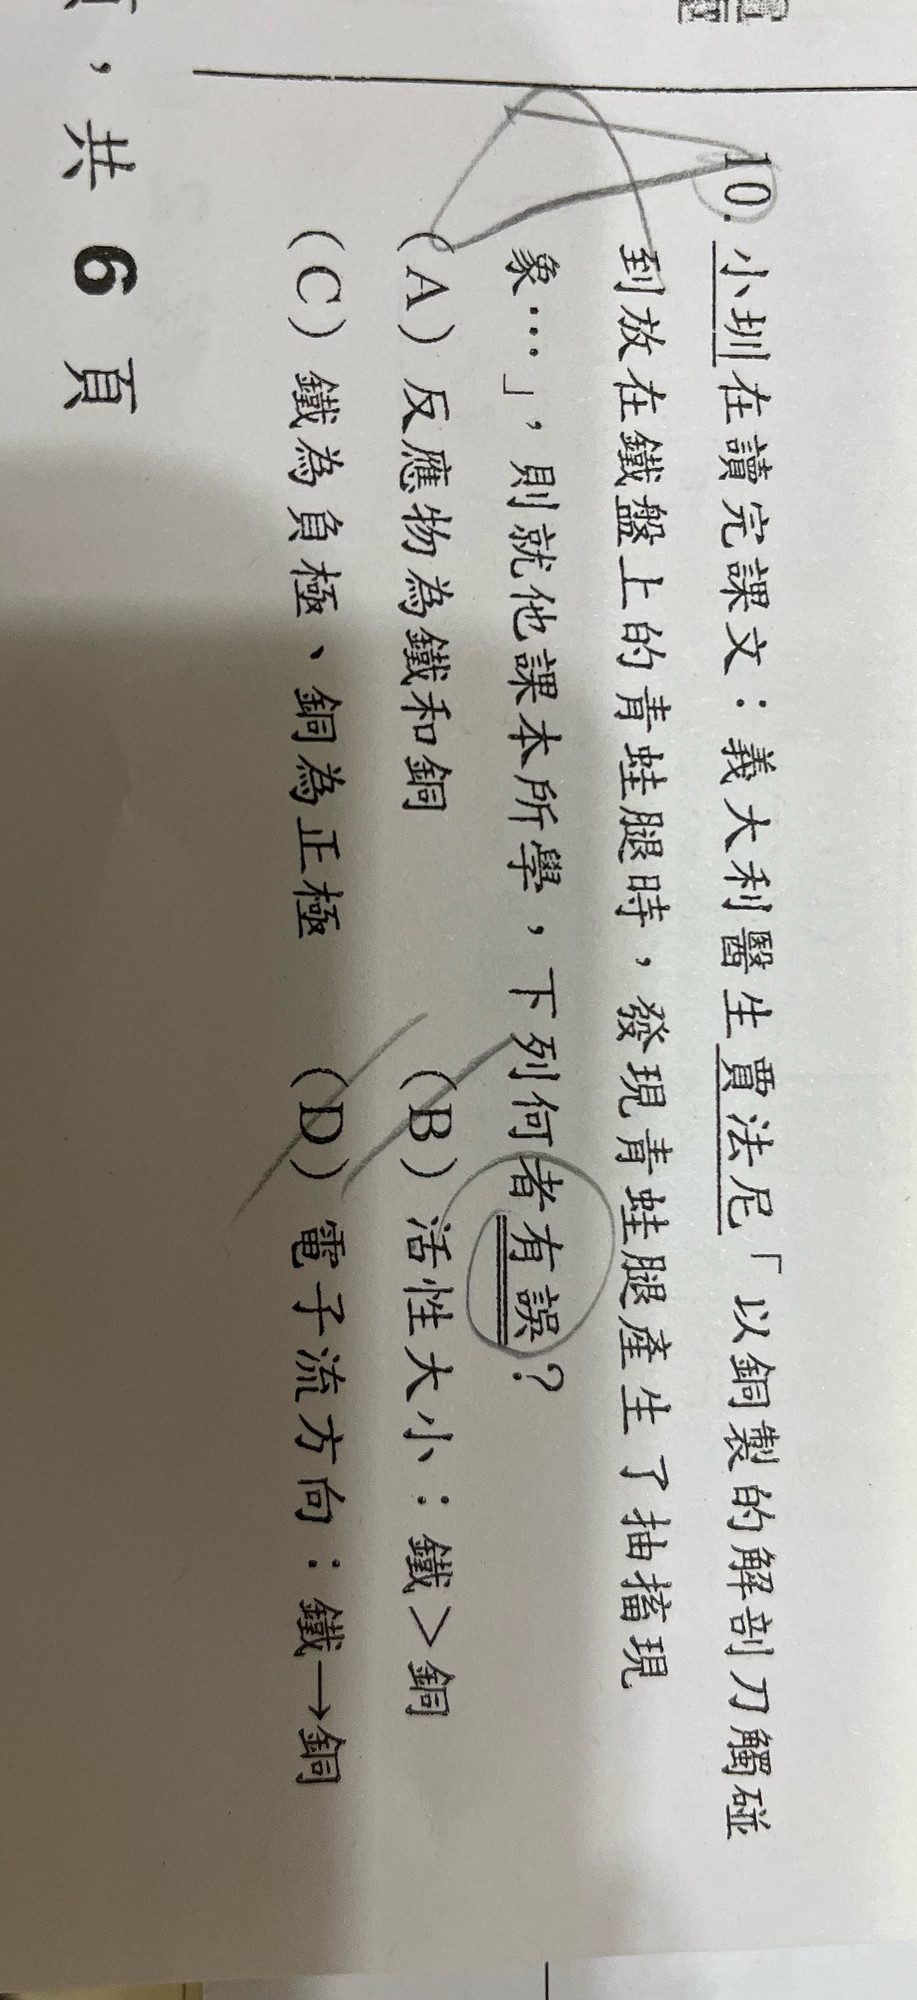 10. 小圳在讀完課文：義大利醫生賈法尼「以銅製的解剖刀觸碰
到放在鐵盤上的青蛙腿時，發現青蛙腿產生了抽搐現
象…」，則就他課本所學，下列何者有誤？
(A) 反應物為鐵和銅 (B) 活性大小：鐵＞銅
(C) 鐵為負極、銅為正極 (D) 電子流方向：鐵→銅
，共 6 頁